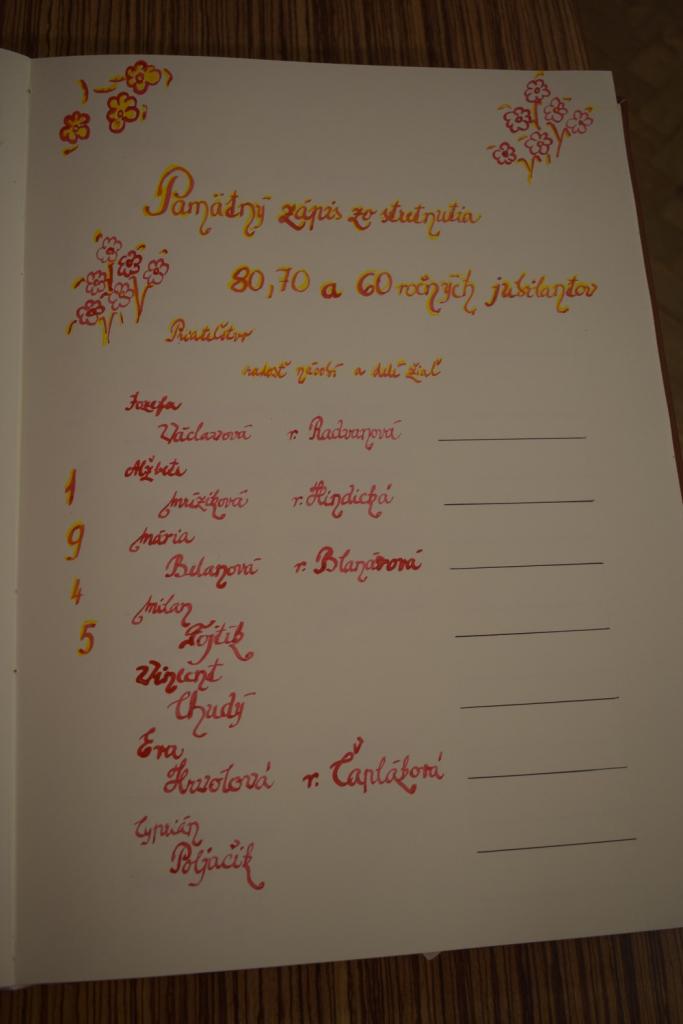 Pamätný zápis zo stretnutia
80,70 a 60 ročných jubilantov
Priateľstvo
radosť násobí a delí žiaľ
Jozefa
Václavová r. Radvanová
Alžbeta
Mrízíková r. Hindická
1
9
4
5
Mária
Belanová r. Blanárová
Milan
Fojtík
Vincent
Chudý
Eva
Hrvolová r. Čapláková
Cyprián
Poljačik